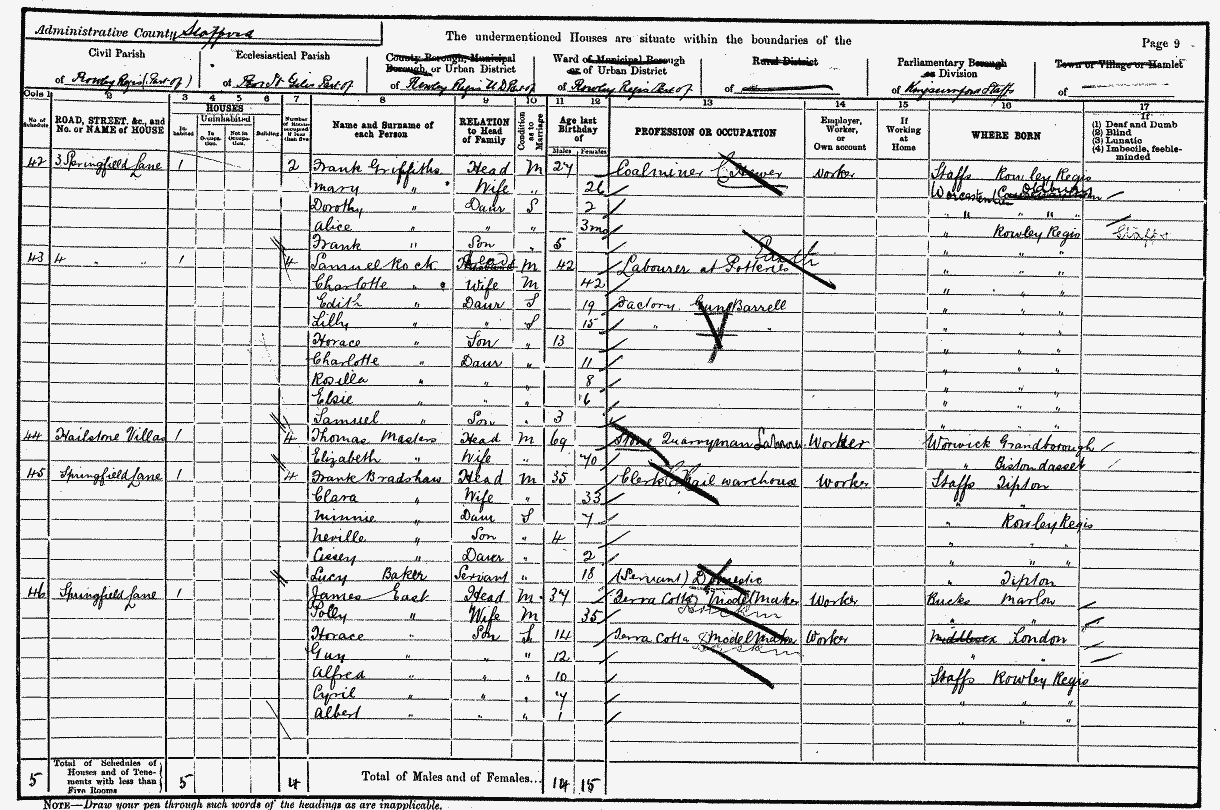 Administrative County Stafford
The undermentioned Houses are situate within the boundaries of the
Page 9
Civil Parish
of Rowley Regis (Part of)
Ecclesiastical Parish
of Part of
County Borough, Municipal Borough, or Urban District
of Rowley Regis U.D. Part of
Ward of Municipal Borough or of Urban District
of Rowley Regis Part of
Rural District
of
Parliamentary Borough or Division
of Kingswinford Staffs
Town or Village or Hamlet
of
Cols 1 2 3 4 5 6 7 8 9 10 11 12 13 14 15 16 17
No. of Schedule
ROAD, STREET, &c., and No. or NAME of HOUSE
HOUSES
Inhabited
Uninhabited
In Occupation.
Not in Occupation.
Building
Number of Rooms occupied if less than five
Name and Surname of each Person
RELATION to Head of Family
Condition as to Marriage
Age last Birthday of
Males Females
PROFESSION OR OCCUPATION
Employer, Worker, or Own account
If Working at Home
WHERE BORN
If
(1) Deaf and Dumb
(2) Blind
(3) Lunatic
(4) Imbecile, feeble-minded
42 3 Springfield Lane 1 2 Frank Griffiths Head M 27 Coalminer Hewer Worker Staffs Rowley Regis
Mary " Wife " 26 Worcester Oldbury
Dorothy " Daur S 2 " " " "
Alice " " " 3mo Rowley Regis Staffs
Frank " Son " 5 " " "
43 4 " " 1 4 Samuel Rock Head M 42 Labourer at Potteries Earth " " "
Charlotte " Wife M 42 " " "
Edith " Daur S 19 Factory Gun Barrell " " "
Lilly " " S 15 " " " " "
Horace " Son " 13 " " "
Charlotte " Daur " 11 " " "
Rosella " " " 8 " " "
Elsie " " " 6 " " "
Samuel " Son " 3 " " "
44 Hailstone Villas 1 4 Thomas Masters Head M 69 Stone Quarryman Labourer Worker Warwick Grandborough
Elizabeth " Wife " 70 "
45 Springfield Lane 1 4 Frank Bradshaw Head M 35 Clerk Nail warehouse Worker Staffs Tipton
Clara " Wife " 33 " "
Minnie " Daur S 7 " Rowley Regis
Neville " Son " 4 " " "
Cissey " Daur " 2 " " "
Lucy Baker Servant " 18 (Servant) Domestic " Tipton
46 Springfield Lane 1 James East Head M 37 Terra Cotta Model Maker Worker Bucks Marlow
Polly " Wife M 35 " "
Horace " Son S 14 Terra Cotta Model Maker Worker Middlesex London
Guy " " " 12 " "
Alfred " " " 10 Staffs Rowley Regis
Cyril " " " 7 " " "
Albert " " " 1 " " "
5 Total of Schedules of Houses and of Tenements with less than Five Rooms 5 4 Total of Males and of Females... 14 15
NOTE—Draw your pen through such words of the headings as are inapplicable.